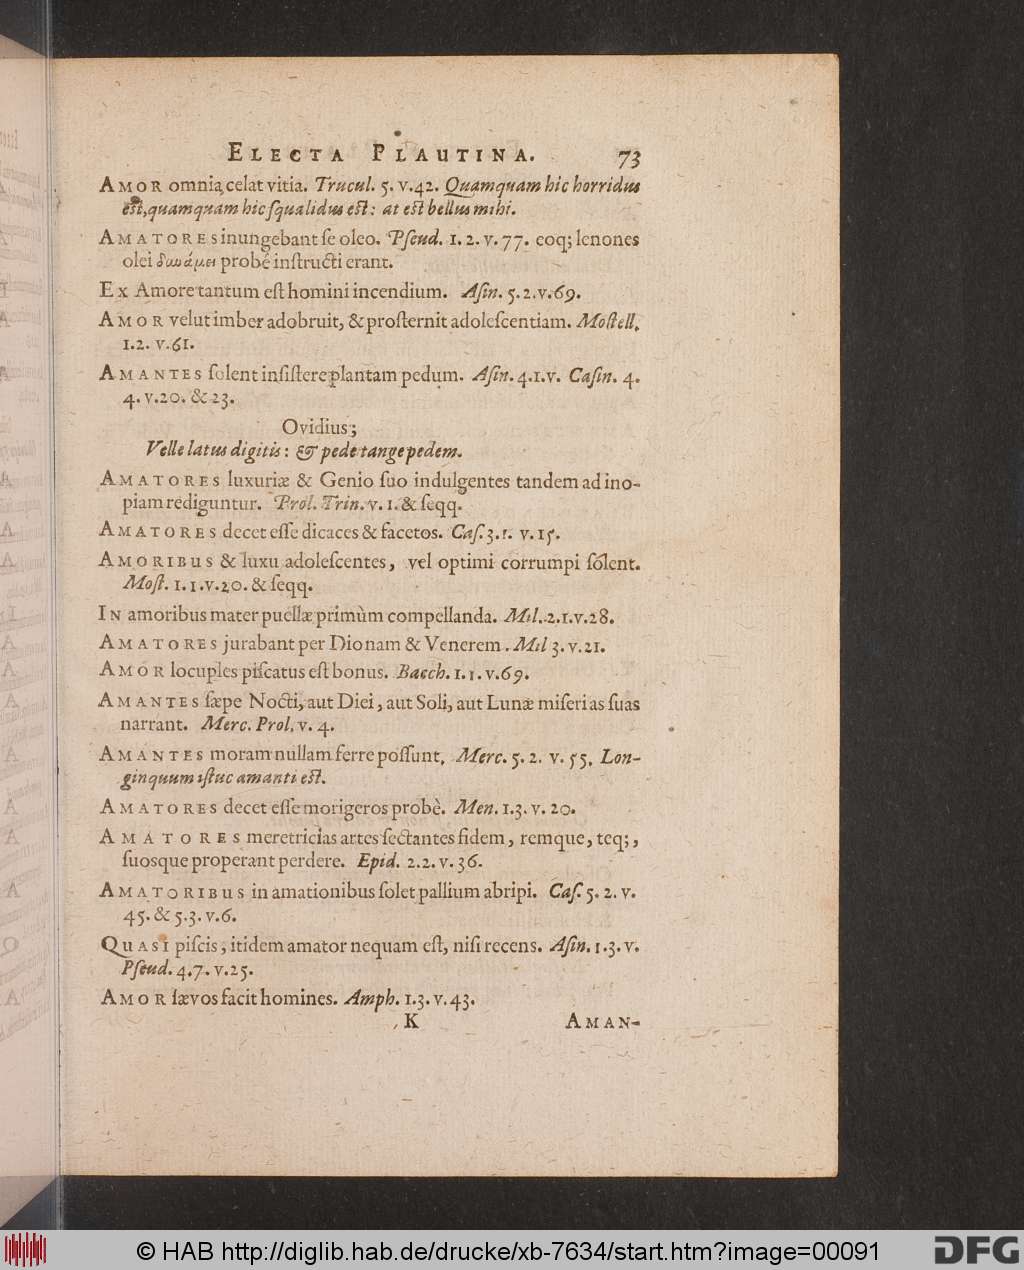 ELECTA PLAUTINA. 73
AMOR omnia celat vitia. Trucul. 5. v.42. Quamquam hic horridus
est, quamquam hic squalidus est: at est bellus mihi.
AMATORES inungebant se oleo. Pseud. 1. 2. v. 77. eoq; lenones
olei δυνάμει probè instructi erant.
Ex Amore tantum est homini incendium. Asin. 5.2.v.69.
AMOR velut imber adobruit, & prosternit adolescentiam. Mostell.
1.2. v.61.
AMANTES solent insistere plantam pedum. Asin. 4.1.v. Casin. 4.
4. v.20. & 23.
Ovidius;
Velle latus digitis: & pede tange pedem.
AMATORES luxuriæ & Genio suo indulgentes tandem ad ino-
piam rediguntur. Prol. Trin. v. 1. & seqq.
AMATORES decet esse dicaces & facetos. Cas. 3.1. v.15.
AMORIBUS & luxu adolescentes, vel optimi corrumpi solent.
Most. 1.1.v.20. & seqq.
IN amoribus mater puellæ primùm compellanda. Mil. 2.1.v.28.
AMATORES jurabant per Dionam & Venerem. Mil 3. v.21.
AMOR locuples piscatus est bonus. Bacch. 1.1.v.69.
AMANTES sæpe Nocti, aut Diei, aut Soli, aut Lunæ miserias suas
narrant. Merc. Prol. v. 4.
AMANTES moram nullam ferre possunt, Merc. 5. 2. v. 55. Lon-
ginquum istuc amanti est.
AMATORES decet esse morigeros probè. Men. 1.3. v. 20.
AMATORES meretricias artes sectantes fidem, remque, teq;,
suosque properant perdere. Epid. 2.2. v.36.
AMATORIBUS in amationibus solet pallium abripi. Cas. 5. 2. v.
45. & 5.3. v.6.
QUASI piscis, itidem amator nequam est, nisi recens. Asin. 1.3. v.
Pseud. 4.7. v.25.
AMOR sævos facit homines. Amph. 1.3. v.43.
K AMAN-
© HAB http://diglib.hab.de/drucke/xb-7634/start.htm?image=00091 DFG